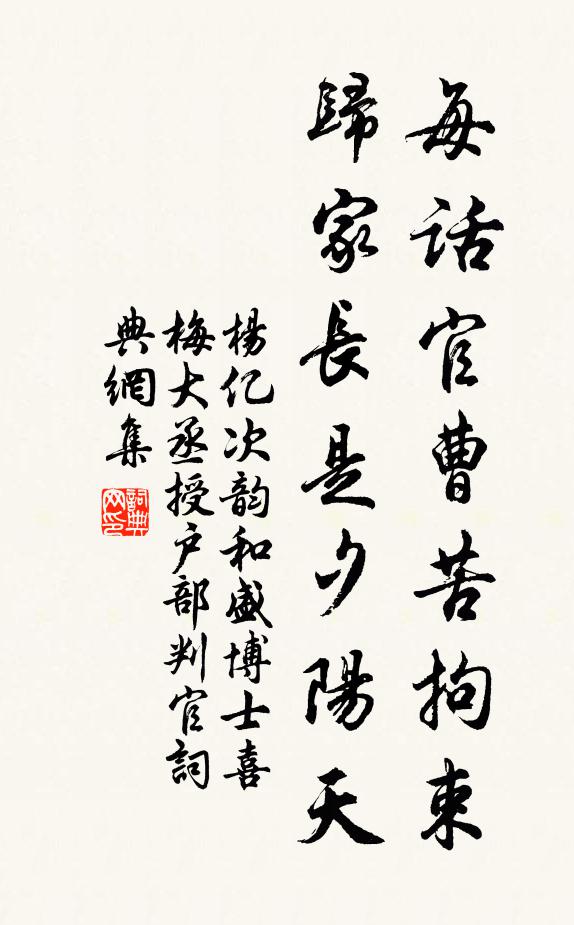 每話官曹苦拘束
歸家長是夕陽天
楊亿次韵和盛博士喜
梅大丞授户部判官詞
典網集
詞典網印